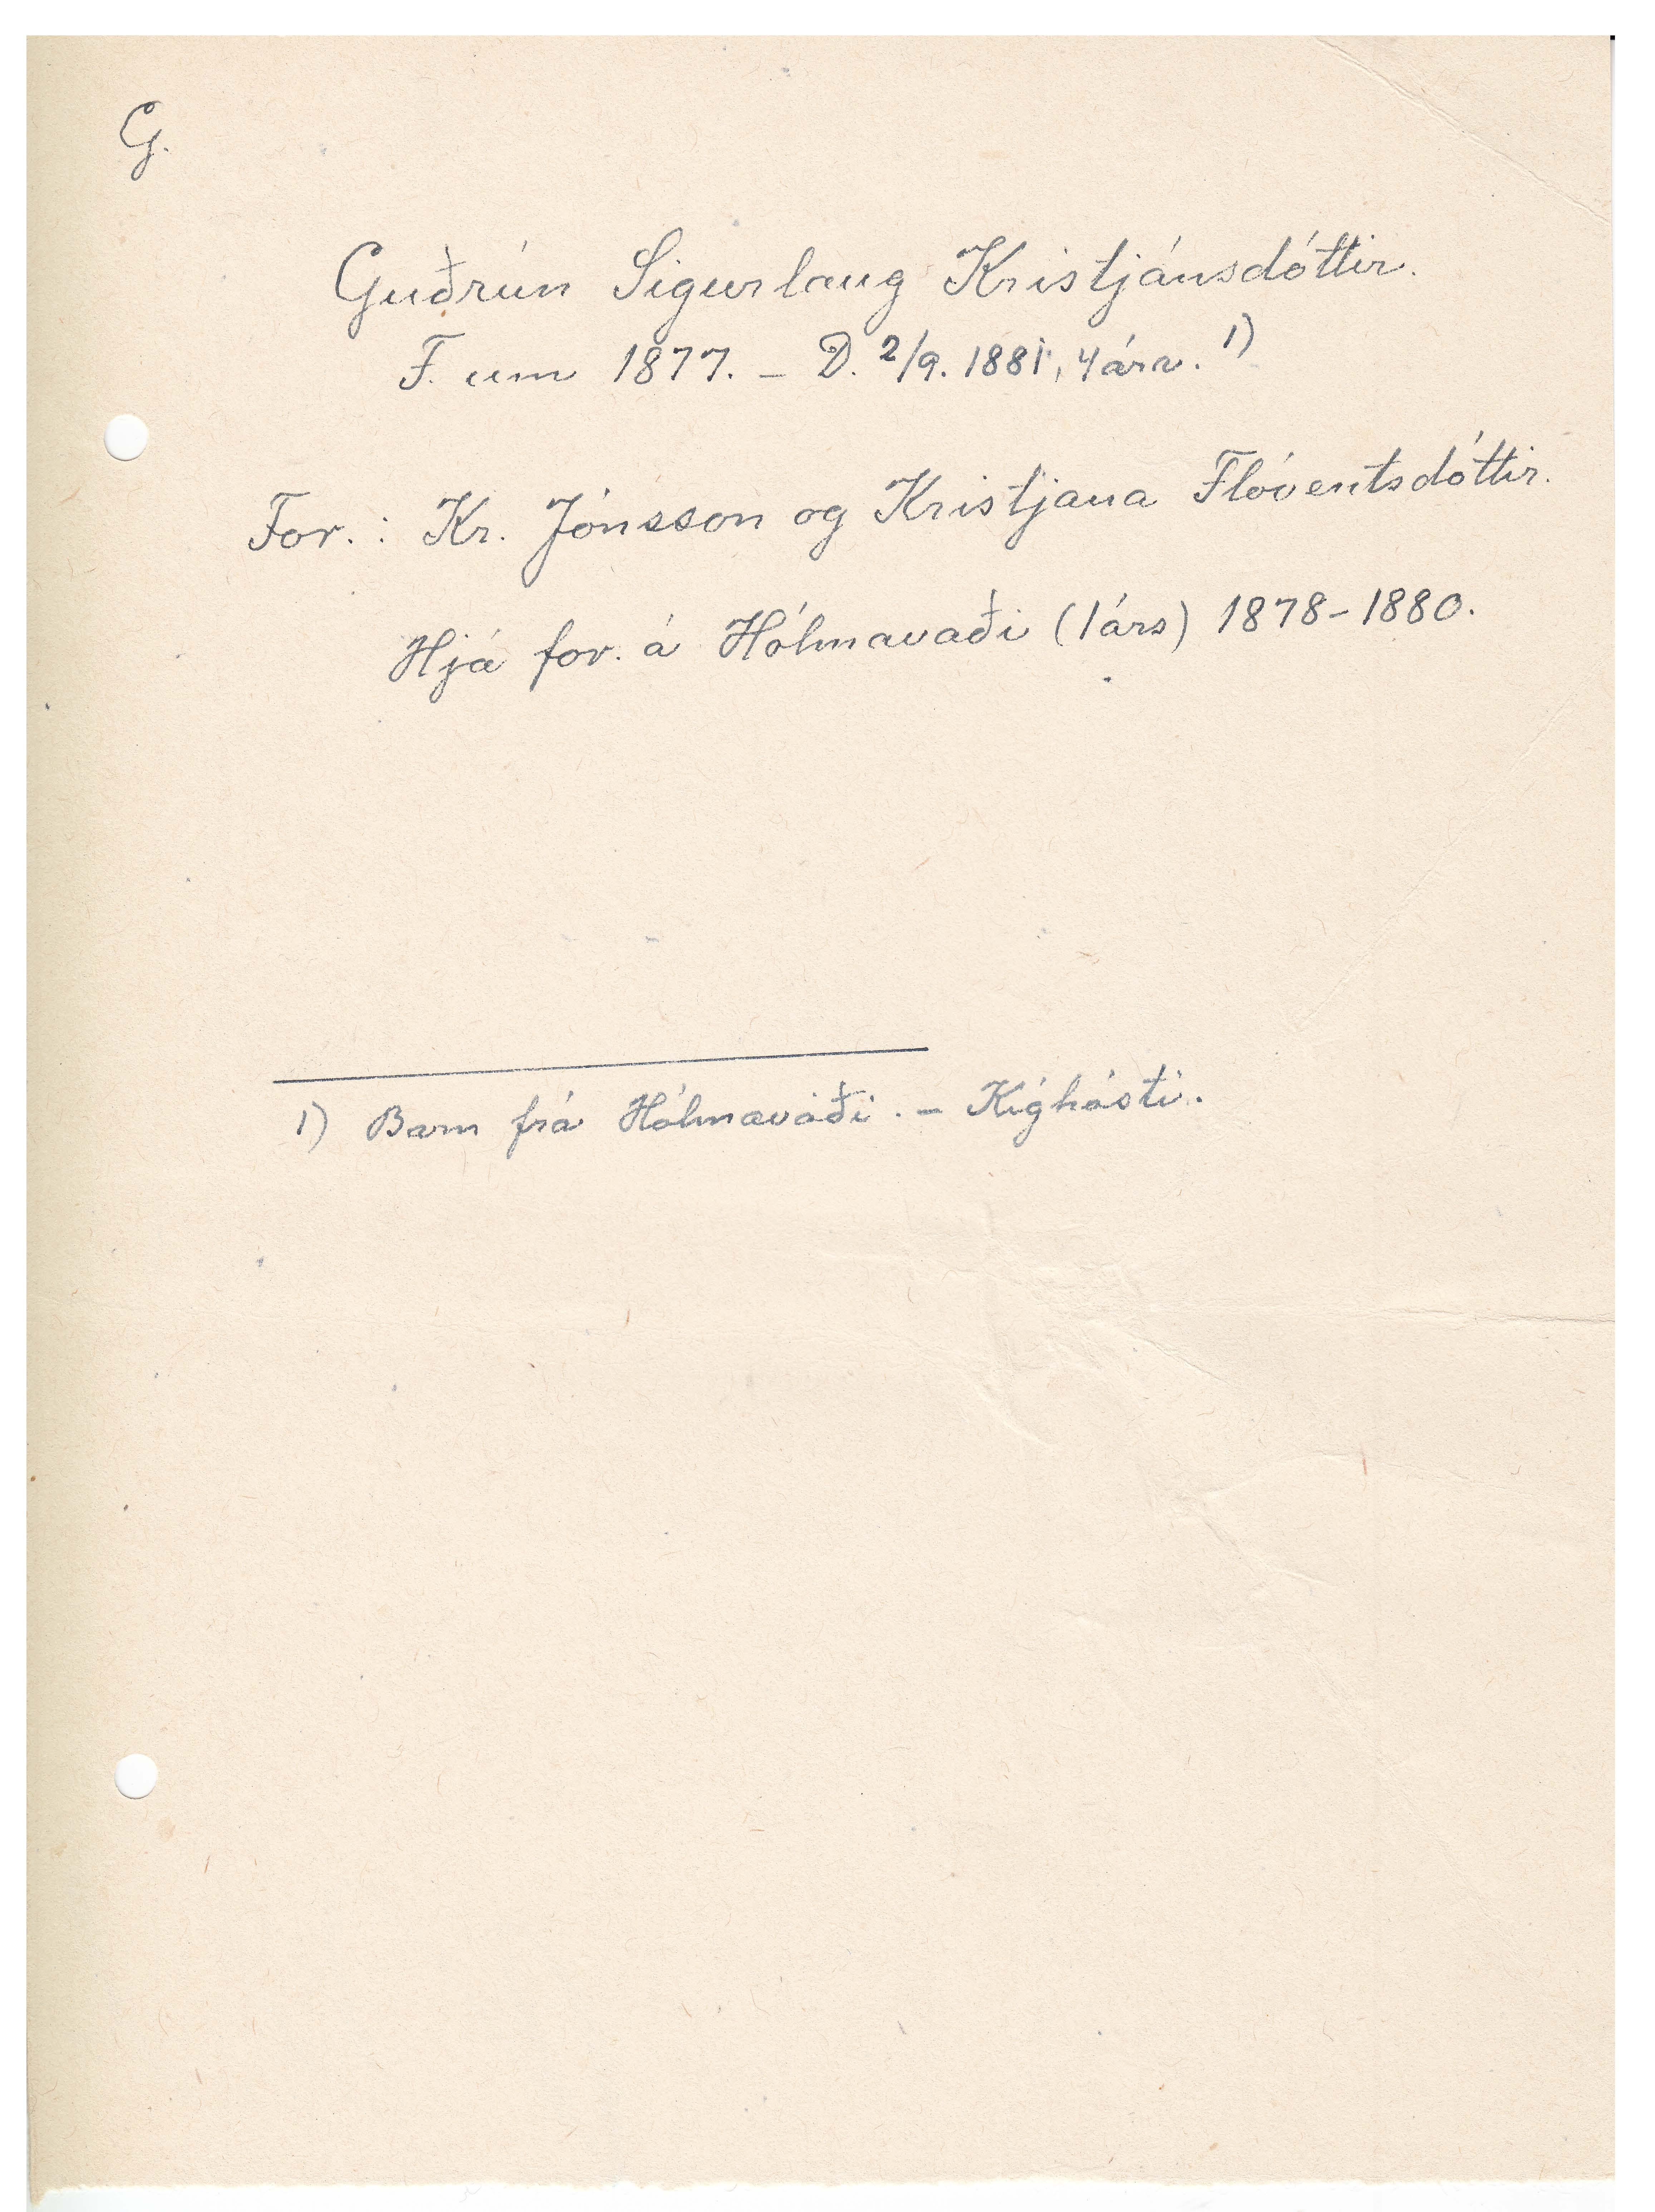 G.
Guðrún Sigurlaug Kristjánsdóttir.
F. um 1877. – D. 2/9. 1881, 4 ára. 1)
For.: Kr. Jónsson og Kristjana Flóventsdóttir.
Hjá for. á Hólmavaði (1 árs) 1878-1880.
1) Barn frá Hólmavaði. – Kíghósti.